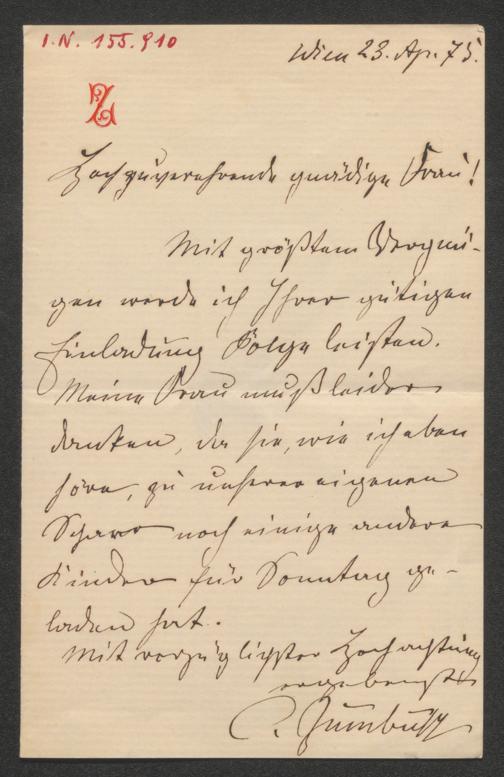 I.N. 155.910
Wien 23. Ap. 75.
Z
Hochzuverehrende gnädige Frau!
Mit größtem Vergnü-
gen werde ich Ihrer gütigen
Einladung Folge leisten.
Meine Frau muß leider
danken, da sie, wie ich eben
höre, zu unserer eigenen
Schaar noch einige andere
Kinder für Sonntag ge-
laden hat.
Mit vorzüglichster Hochachtung
ergebenst
C. Zumbusch